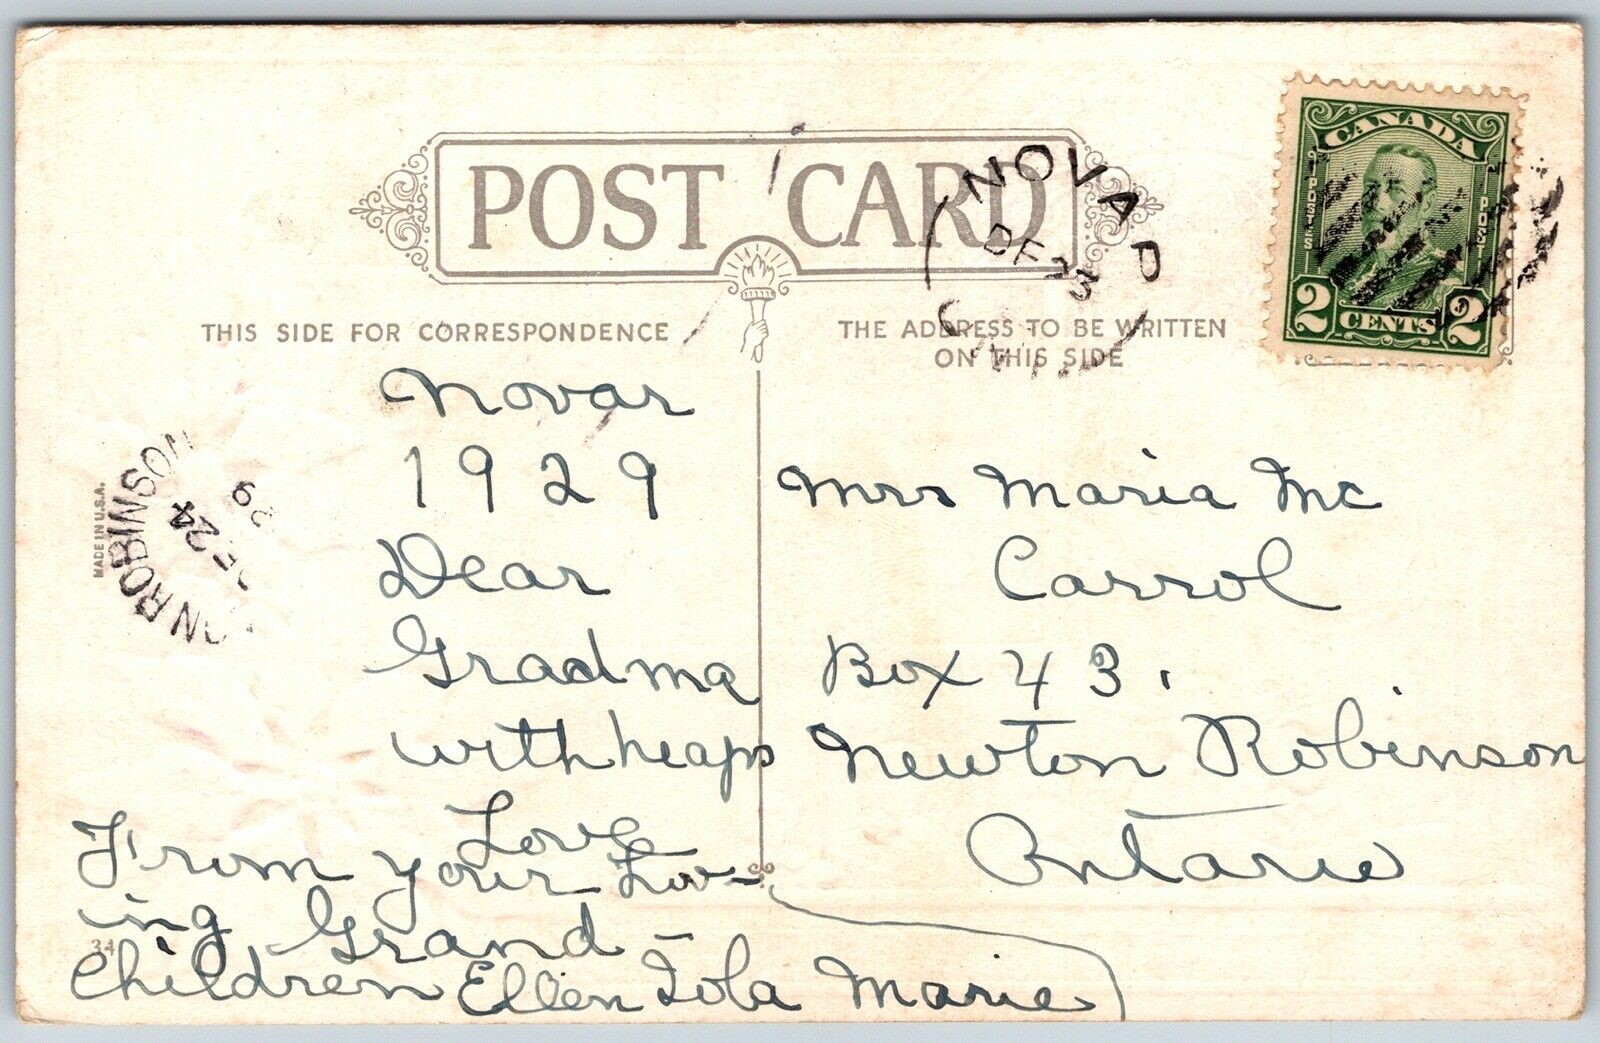 POST CARD
THIS SIDE FOR CORRESPONDENCE
THE ADDRESS TO BE WRITTEN
ON THIS SIDE
NOVAR
DE 23
CANADA
POSTES
POSTAGE
2 CENTS 2
MADE IN U.S.A.
ON ROBINSON
DE 24
29
Novar
1929
Dear
Gradma
with heaps
Love
From your Lov-
ing Grand-
Children Ellen Iola Marie
34
Mrs Maria Mc
Carrol
Box 43.
Newton Robinson
Ontario